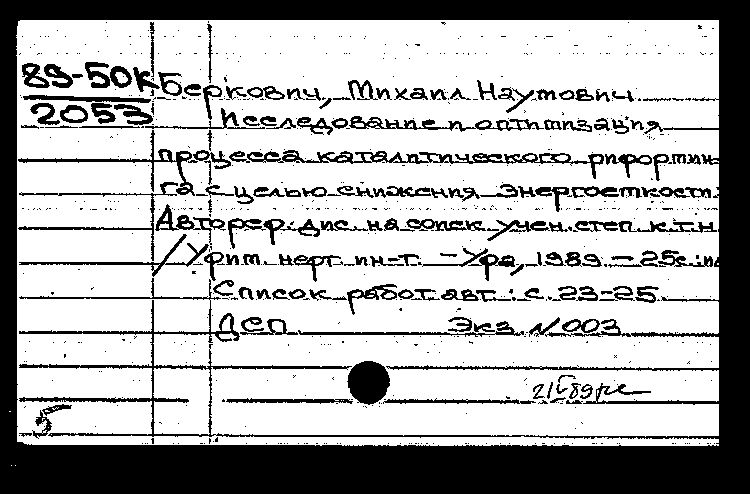 89-50К
2053
Беркович, Михаил Наумович
Исследование и оптимизация
процесса каталитического риформин-
га с целью снижения энергоемкости.
Автореф. дис. на соиск. учен. степ. к.т.н.
/ Уфим. нефт. ин-т. - Уфа, 1989. - 25с.:
Список работ авт.: с. 23-25.
ДСП. Экз. №003
5